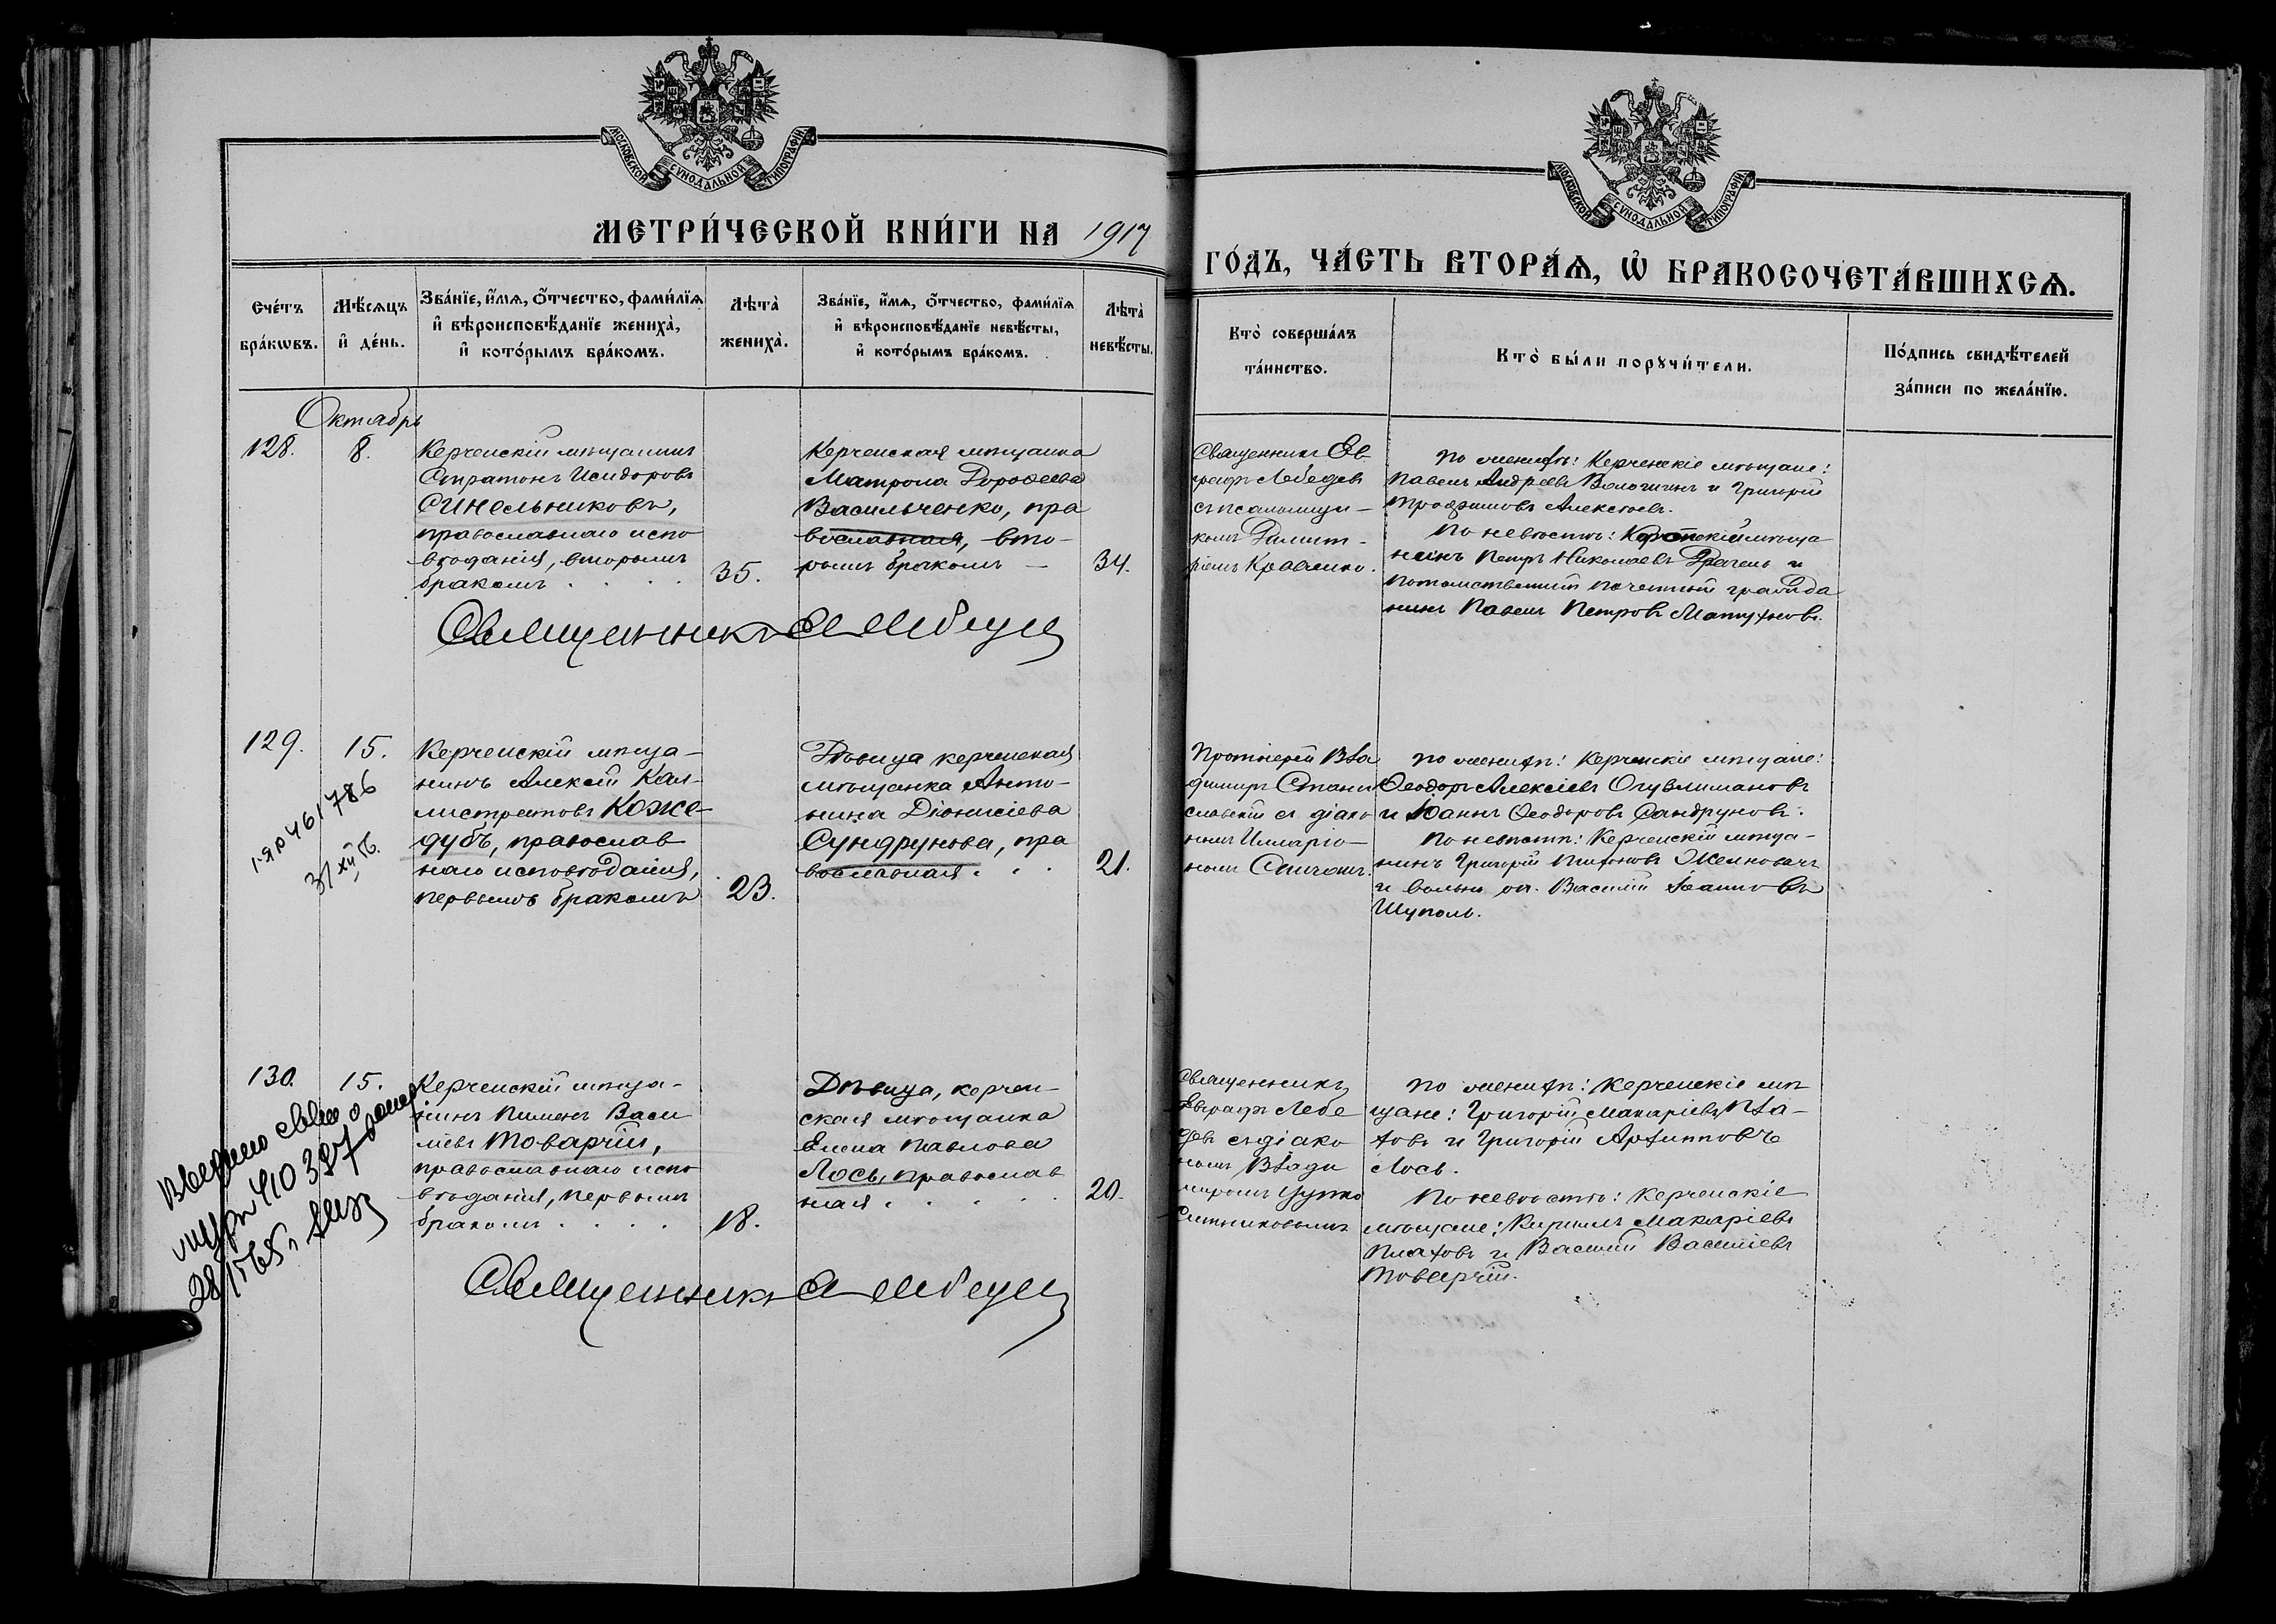 МОСКОВСКОЙ СѴНОДАЛЬНОЙ ТИПОГРАФІИ
МОСКОВСКОЙ СѴНОДАЛЬНОЙ ТИПОГРАФІИ
МЕТРИ́ЧЕСКОЙ КНИ́ГИ НА 1917
ГО́ДЪ, ЧА́СТЬ ВТОРА́Ѧ, Ѡ҆ БРАКОСОЧЕТА́ВШИХСѦ.
Сче́тъ
бра́кѡвъ.
Мѣ́сѧцъ
и҆ де́нь.
Зва́нїе, и҆́мѧ, ѻ҆́тчество, фами́лїѧ
и҆ вѣроисповѣ́данїе жениха̀,
и҆ кото́рымъ бра́комъ.
Лѣта̀
жениха̀.
Зва́нїе, и҆́мѧ, ѻ҆́тчество, фами́лїѧ
и҆ вѣроисповѣ́данїе невѣ́сты,
и҆ кото́рымъ бра́комъ.
Лѣта̀
невѣ́сты.
Кто̀ соверша́лъ
та́инство.
Кто̀ бы́ли порꙋчи́тели.
По́дпись свидѣ́телей
за́писи по жела́нїю.
Октябрь
128.
8.
Керченскій мѣщанинъ
Стратонъ Исидоровъ
Синельниковъ,
православнаго испо
вѣданія, вторымъ
бракомъ . . . .
35.
Керченская мѣщанка
Матрона Дороѳеева
Васильченко, пра
вославная, вто-
рымъ бракомъ —
34.
Священникъ Ев
графъ Лебедевъ
съ псаломщи-
комъ Димит-
ріемъ Кравченко.
По женихѣ: Керченскіе мѣщане:
Павелъ Андреевъ Вологинъ и Григорій
Трофимовъ Алексѣевъ.
По невѣстѣ: Керченскій мѣща
нинъ Петръ Николаевъ Драгель и
потомственный почетный гражда
нинъ Павелъ Петровъ Матухновъ.
Священникъ Е Лебедевъ
129.
15.
1-ЯР 461786
31 XII 56.
Керченскій мѣща-
нинъ Алексій Кал-
листратовъ Коже-
дубъ, православ
наго исповѣданія,
первымъ бракомъ
23.
Дѣвица керченская
мѣщанка Анто-
нина Діонисіева
Сундрунова, пра
вославная . . .
21.
Протоіерей Вла
димиръ Стани
славскій съ діако
номъ Иларіо-
номъ
по женихѣ: Керченскіе мѣщане:
Ѳеодоръ Алексіевъ
и Іоаннъ Ѳеодоровъ Сандруновъ.
По невѣстѣ: Керченскій мѣща-
нинъ Григорій
и Василій Іоанновъ
Шуполь.
130.
15.
410387
28/I-65 г.
Керченскій мѣща-
нинъ Пименъ Васи
ліевъ Товарчій,
православнаго испо
вѣданія, первымъ
бракомъ . . . .
18.
Дѣвица, керчен-
ская мѣщанка
Елена Павлова
Лось, православ
ная . . . . .
20.
Священникъ
Евграфъ Лебе
девъ съ діако
номъ Влади
миромъ
Ситниковымъ
По женихѣ: Керченскіе мѣ
щане: Григорій Макаріевъ Пла-
ховъ и Григорій Архиповъ
Лось.
По невѣстѣ: Керченскіе
мѣщане: Кириллъ Макаріевъ
Плаховъ и Василій Василіевъ
Товарчій.
Священникъ Е Лебедевъ